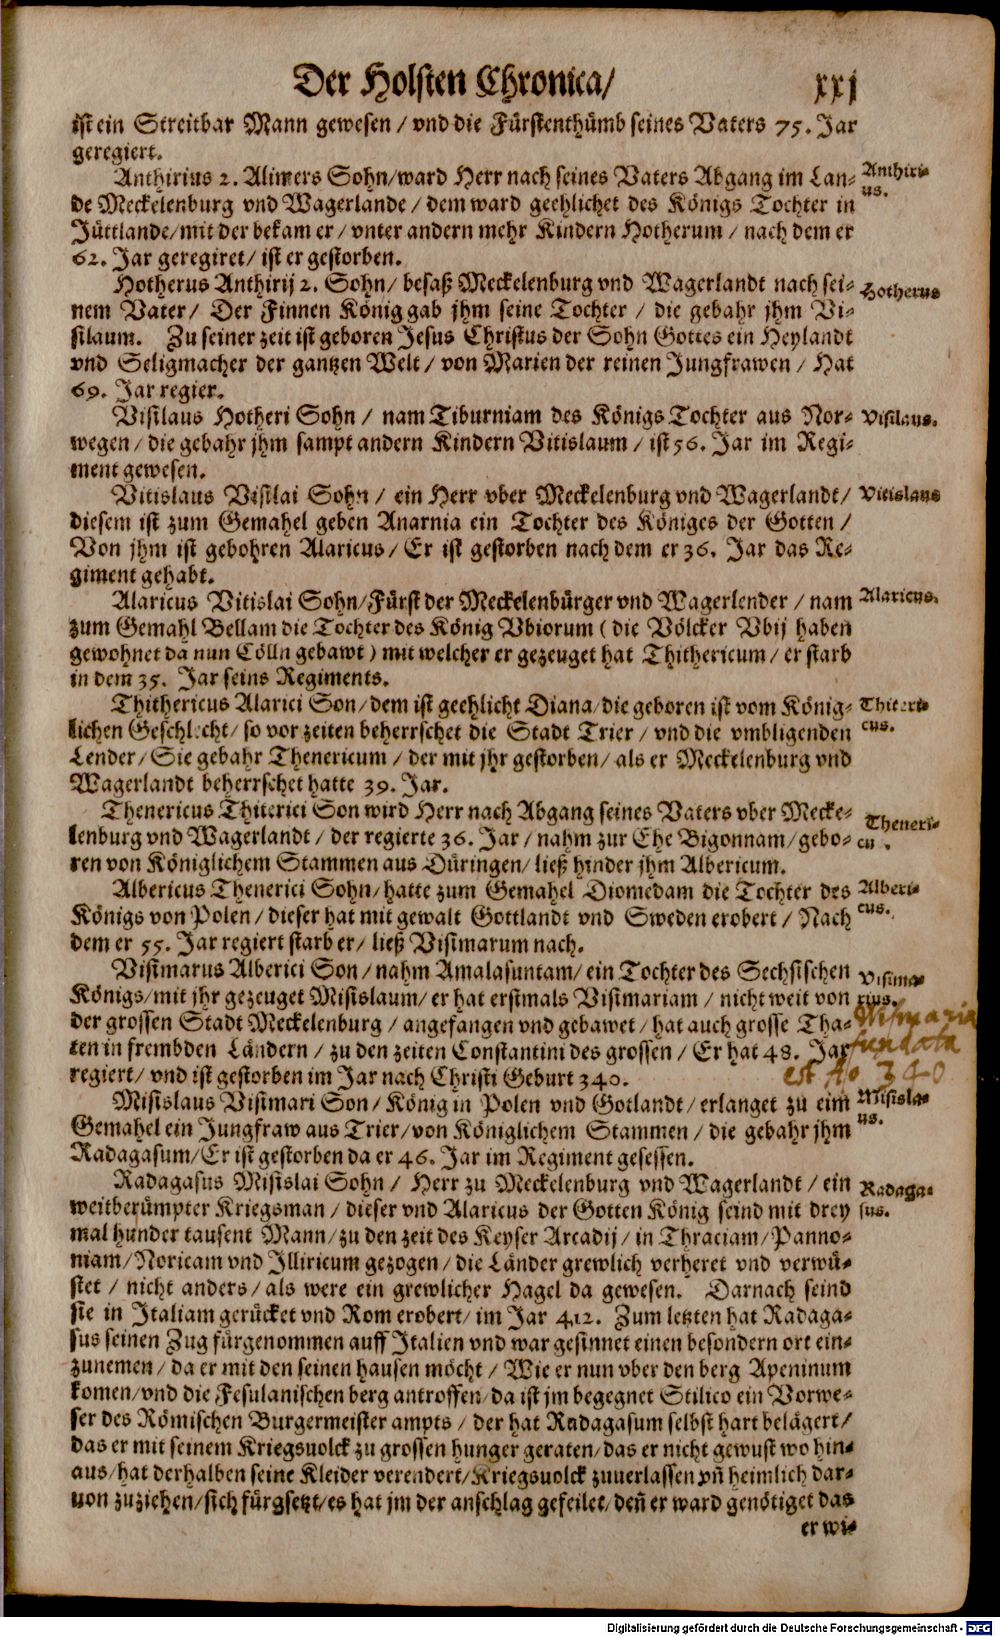 Der Holsten Chronica/ xxj
ist ein Streitbar Mann gewesen / vnd die Fürstenthümb seines Vaters 75. Jar
geregiert.
Anthirius 2. Alimers Sohn/ward Herr nach seines Vaters Abgang im Lan-
de Meckelenburg vnd Wagerlande / dem ward geehlichet des Königs Tochter in
Jüttlande/mit der bekam er / vnter andern mehr Kindern Hotherum / nach dem er
62. Jar geregiret/ ist er gestorben.
Anthiri-
us.
Hotherus Anthirij 2. Sohn/ besaß Meckelenburg vnd Wagerlandt nach sei-
nem Vater/ Der Finnen König gab jhm seine Tochter / die gebahr jhm Vi-
silaum. Zu seiner zeit ist geboren Jesus Christus der Sohn Gottes ein Heylandt
vnd Seligmacher der gantzen Welt / von Marien der reinen Jungfrawen / Hat
69. Jar regier.
Hotherus
Visilaus Hotheri Sohn / nam Tiburniam des Königs Tochter aus Nor-
wegen / die gebahr jhm sampt andern Kindern Vitislaum / ist 56. Jar im Regi-
ment gewesen.
Visilaus.
Vitislaus Visilai Sohn / ein Herr vber Meckelenburg vnd Wagerlandt/
diesem ist zum Gemahel geben Anarnia ein Tochter des Königes der Gotten /
Von jhm ist gebohren Alaricus/ Er ist gestorben nach dem er 36. Jar das Re-
giment gehabt.
Vitislaus
Alaricus Vitislai Sohn/Fürst der Meckelenbürger vnd Wagerlender / nam
zum Gemahl Bellam die Tochter des König Vbiorum ( die Völcker Vbij haben
gewohnet da nun Cölln gebawt ) mit welcher er gezeuget hat Thithericum / er starb
in dem 35. Jar seins Regiments.
Alaricus.
Thithericus Alarici Son/dem ist geehlicht Diana/die geboren ist vom König-
lichen Geschlecht/ so vor zeiten beherrschet die Stadt Trier / vnd die vmbligenden
Lender/ Sie gebahr Thenericum / der mit jhr gestorben/ als er Meckelenburg vnd
Wagerlandt beherrschet hatte 39. Jar.
Thiteri-
cus.
Thenericus Thiterici Son wird Herr nach Abgang seines Vaters vber Mecke-
lenburg vnd Wagerlandt / der regierte 36. Jar / nahm zur Ehe Bigonnam/gebo-
ren von Königlichem Stammen aus Düringen/ ließ hinder jhm Albericum.
Theneri-
cu .
Albericus Thenerici Sohn/hatte zum Gemahel Diomedam die Tochter des
Königs von Polen / dieser hat mit gewalt Gottlandt vnd Sweden erobert / Nach
dem er 55. Jar regiert starb er/ ließ Visimarum nach.
Alberi-
cus.
Visimarus Alberici Son / nahm Amalasuntam/ ein Tochter des Sechsischen
Königs/mit jhr gezeuget Misislaum/ er hat erstmals Visimariam / nicht weit von
der grossen Stadt Meckelenburg / angefangen vnd gebawet / hat auch grosse Tha-
ten in frembden Ländern / zu den zeiten Constantini des grossen / Er hat 48. Jar
regiert/ vnd ist gestorben im Jar nach Christi Geburt 340.
Visima-
rius.
Wismaria
fundata
est Ao 340
Misislaus Visimari Son / König in Polen vnd Gotlandt / erlanget zu eim
Gemahel ein Jungfraw aus Trier/von Königlichem Stammen / die gebahr jhm
Radagasum/Er ist gestorben da er 46. Jar im Regiment gesessen.
Misisla-
us.
Radagasus Misislai Sohn / Herr zu Meckelenburg vnd Wagerlandt / ein
weitberümpter Kriegsman / dieser vnd Alaricus der Gotten König seind mit drey
mal hunder tausent Mann/zu den zeit des Keyser Arcadij / in Thraciam/Panno-
niam/Noricam vnd Illiricum gezogen / die Länder grewlich verheret vnd verwü-
stet / nicht anders / als were ein grewlicher Hagel da gewesen. Darnach seind
sie in Italiam gerücket vnd Rom erobert/ im Jar 412. Zum letzten hat Radaga-
sus seinen Zug fürgenommen auff Italien vnd war gesinnet einen besondern ort ein-
zunemen / da er mit den seinen hausen möcht / Wie er nun vber den berg Apeninum
komen/vnd die Fesulanischen berg antroffen/da ist jm begegnet Stilico ein Vorwe-
ser des Römischen Burgermeister ampts / der hat Radagasum selbst hart belägert/
das er mit seinem Kriegsuolck zu grossen hunger geraten/das er nicht gewust wo hin-
aus/hat derhalben seine Kleider verendert/Kriegsuolck zuuerlassen vñ heimlich dar-
uon zu ziehen/sich fürgsetzt/es hat jm der anschlag gefeilet/deñ er ward genötiget das
Radaga-
sus.
er wi-
Digitalisierung gefördert durch die Deutsche Forschungsgemeinschaft - DFG